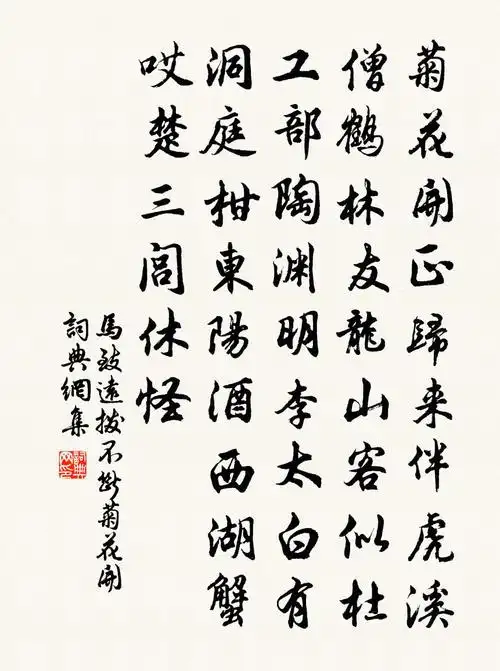 菊花開正歸来伴虎溪
僧鶴林友龍山客似杜
工部陶渊明李太白有
洞庭柑東陽酒西湖蟹
哎楚三閭休怪
馬致遠撥不斷菊花開
詞典網集